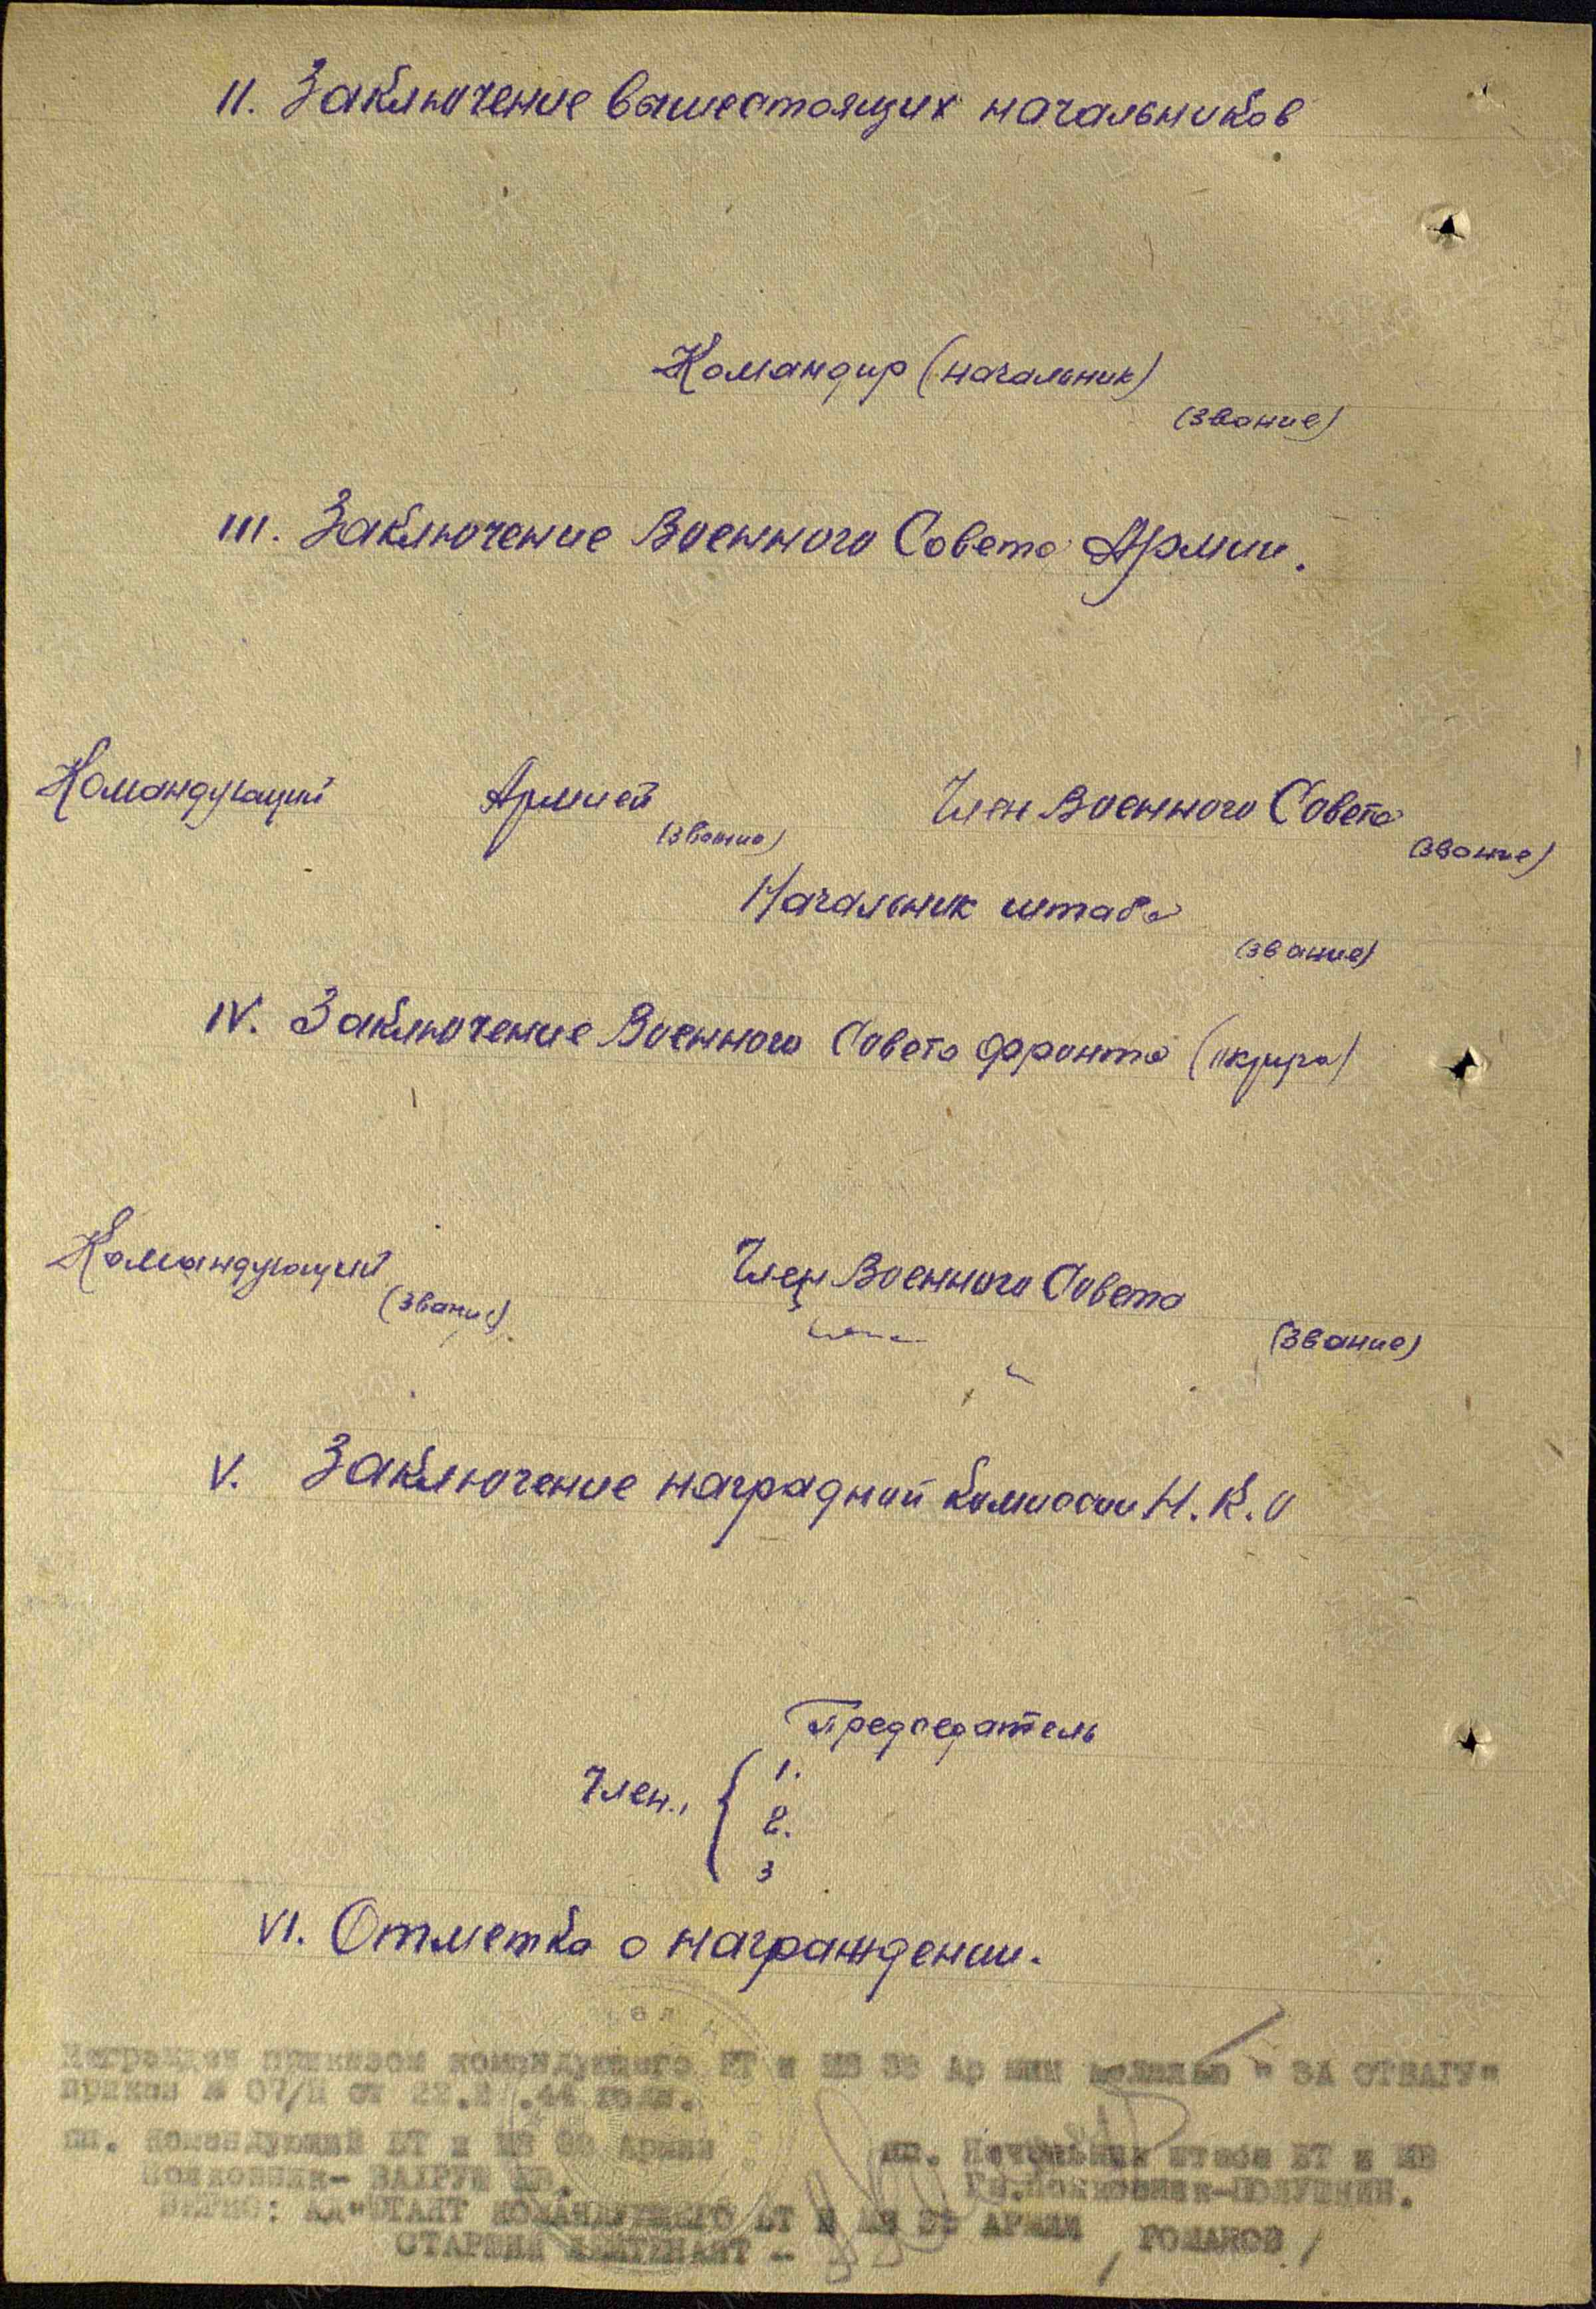 II. Заключение вышестоящих начальников
Командир (начальник)
(звание)
III. Заключение Военного Совета Армии.
Командующий Армией Член Военного Совета
(звание) (звание)
Начальник штаба
(звание)
IV. Заключение Военного Совета фронта (округа)
Командующий Член Военного Совета
(звание) (звание)
V. Заключение наградной комиссии Н.К.О
Председатель
Члены
1.
2.
3
VI. Отметка о награждении.
Награжден приказом командующего БТ и МВ Армии медалью " ЗА ОТВАГУ"
приказ № 07/Н от 22. .44 года.
пп. Командующий БТ и МВ Армии пп. Начальник штаба БТ и МВ
Полковник- Гв.Полковник-
ВЕРНО: АД"ЮТАНТ КОМАНДУЮЩЕГО БТ И МВ АРМИИ
СТАРШИЙ ЛЕЙТЕНАНТ - / РОМАНОВ /